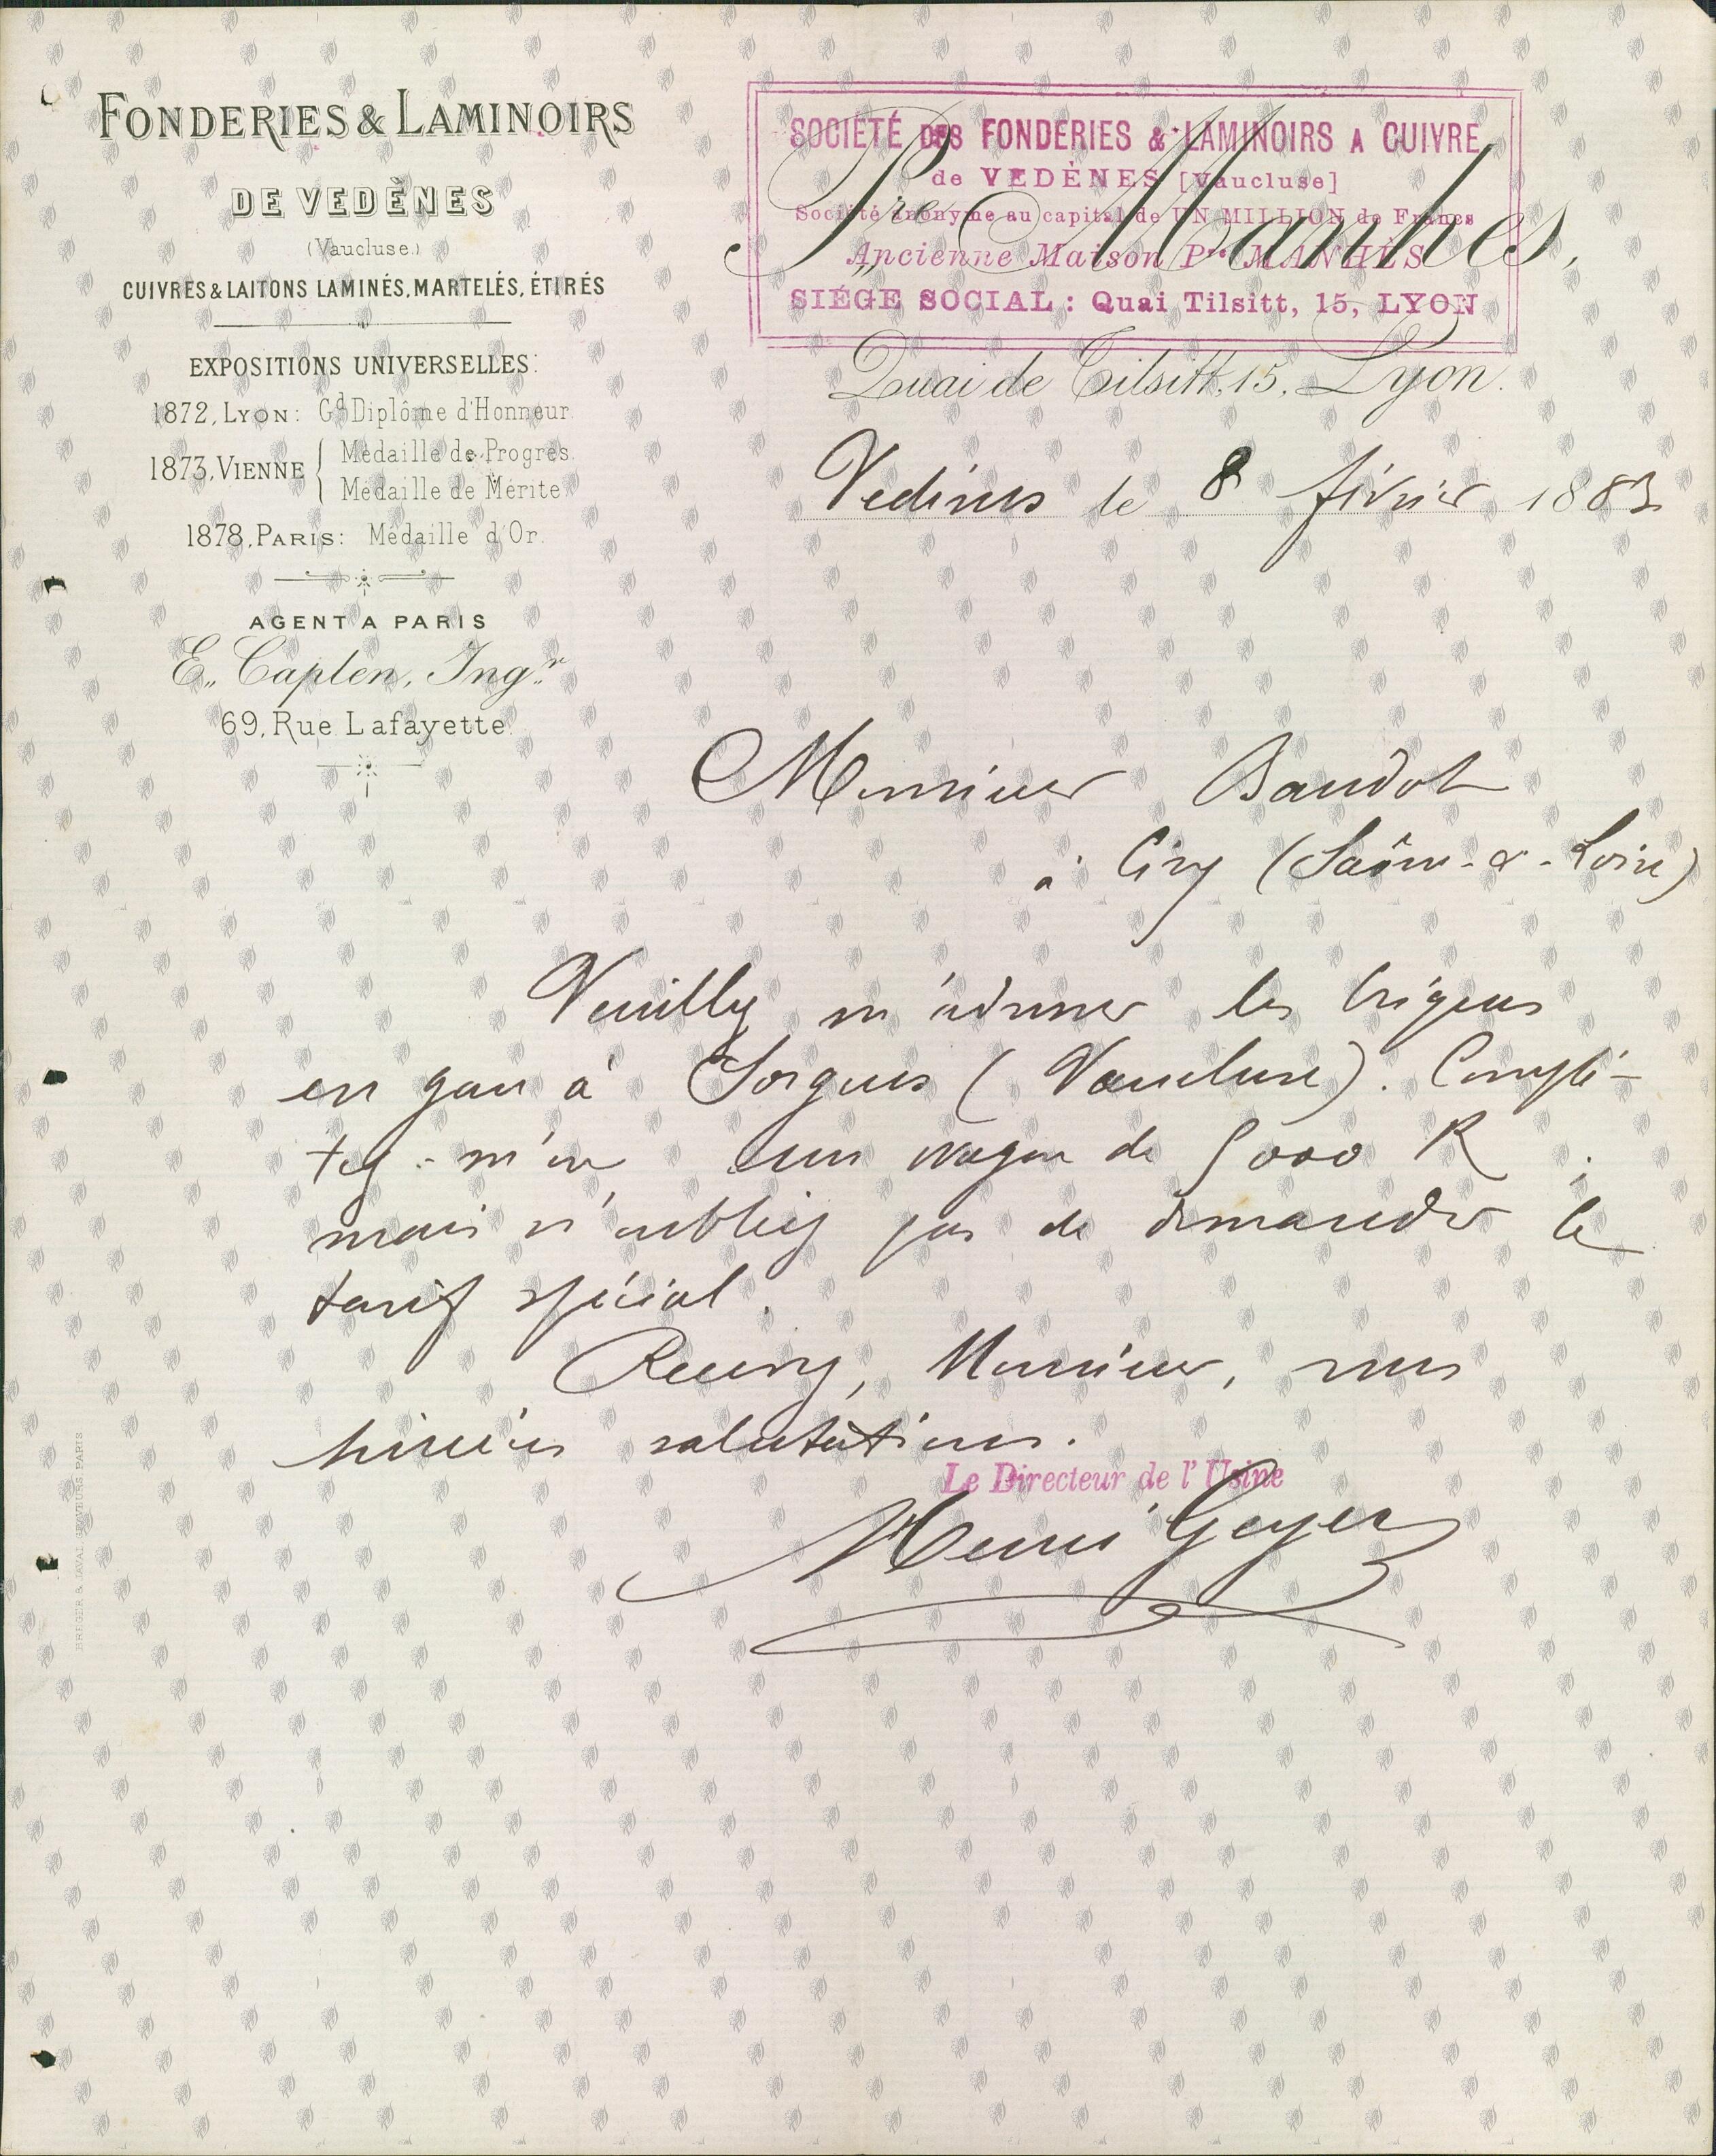 FONDERIES & LAMINOIRS
DE VEDÈNES
(Vaucluse)
CUIVRES & LAITONS LAMINÉS, MARTELÉS, ÉTIRÉS
EXPOSITIONS UNIVERSELLES:
1872, LYON: Gd Diplôme d'Honneur
1873, VIENNE { Médaille de Progrès
Médaille de Mérite
1878, PARIS: Médaille d'Or
AGENT A PARIS
E. Caplen, Ingr.
69, Rue Lafayette
SOCIÉTÉ DES FONDERIES & LAMINOIRS A CUIVRE
de VEDÈNES [Vaucluse]
Société anonyme au capital de UN MILLION de Francs
Ancienne Maison Pre MANHÈS
SIÉGE SOCIAL: Quai Tilsitt, 15, LYON
Pre Manhes,
Quai de Tilsitt, 15, Lyon.
Vedènes le 8 février 1883
Monsieur Baudot
à Ciry (Saône-&-Loire)
Veuillez m'adresser les briques
en gare à Sorgues (Vaucluse). Complé-
tez-m'en un wagon de 5000 K;
mais n'oubliez pas de demander le
tarif spécial.
Recevez, Monsieur, mes
sincères salutations.
Le Directeur de l'Usine
Henri Geyer
BREGER & LAVAL, GRAVEURS PARIS